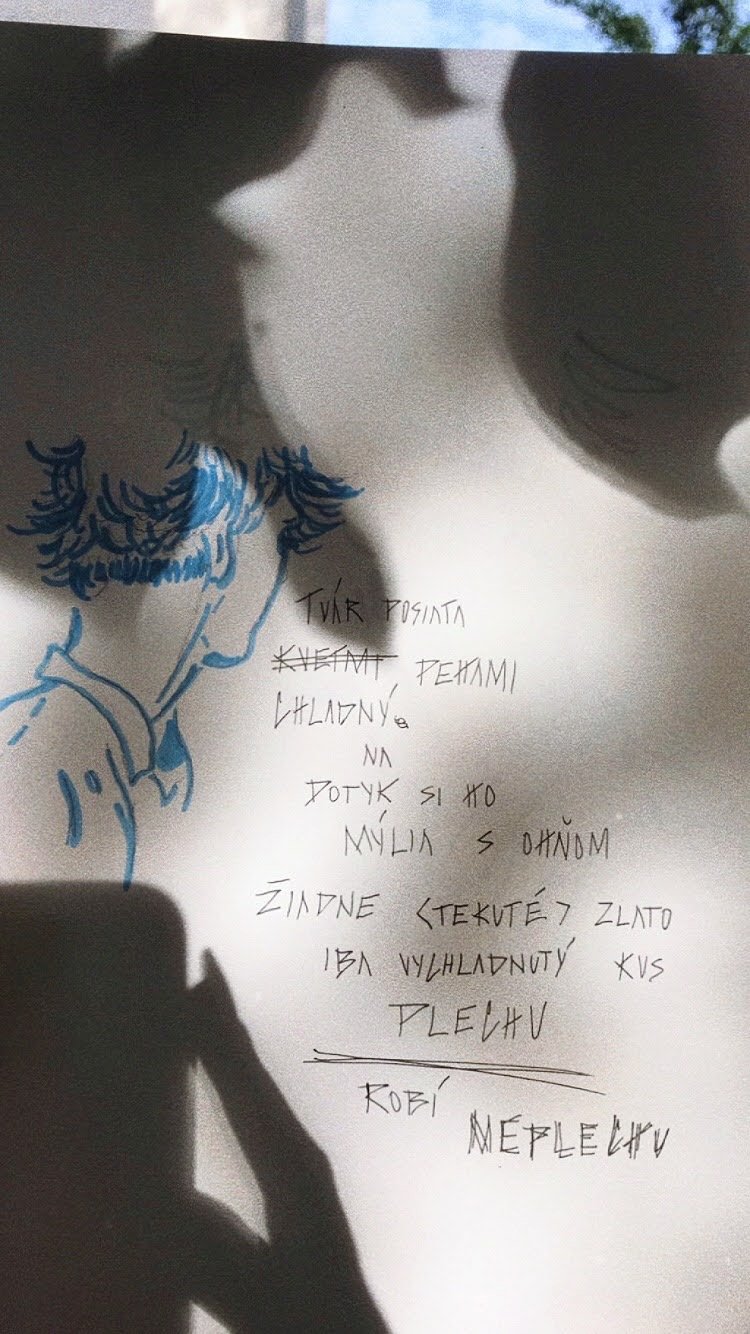 TVÁR POSIATA
KVETMI PEHAMI
CHLADNÝ
NA
DOTYK SI HO
MÝLIA S OHŇOM
ŽIADNE <TEKUTÉ> ZLATO
IBA VYCHLADNUTÝ KUS
PLECHU
ROBÍ
NEPLECHU